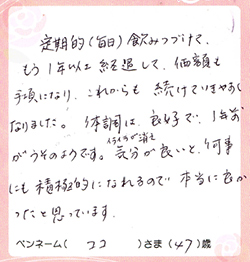 定期的(毎日)飲みつづけて、
もう1年以上経過して、価額も
手頃になり、これからも続けていきやすく
なりました。体調は良好で、1年前
がうそのようです。気分が良いと、何事
にも積極的になれるので本当に良か
ったと思っています。
ペンネーム( ココ )さま(47)歳